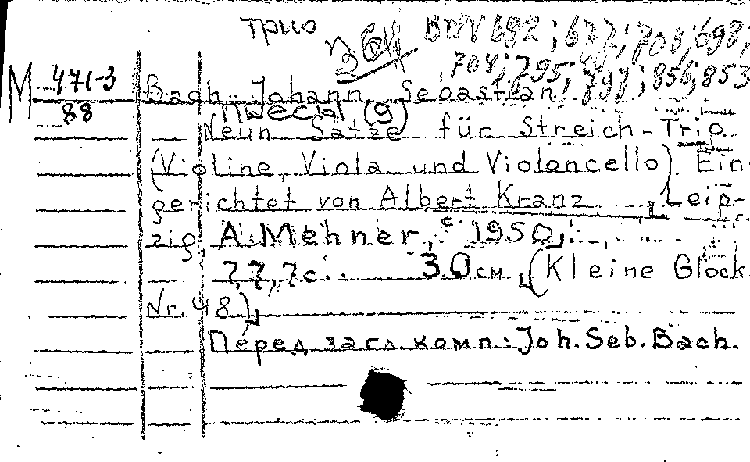 трио
BWV 692; 677; 708; 698;
704; 795; 797; 856; 853
M 471-3
88
Bach Johann Sebastian
Пьесы (9)
Neun Sätze für Streich-Trio
(Violine, Viola und Violoncello). Ein-
gerichtet von Albert Kranz. Leip-
zig, A. Mehner, c 1950,
7,7,7 c. 30 см. (Kleine Glock
Nr. 48).
Перед загл. комп.: Joh. Seb. Bach.